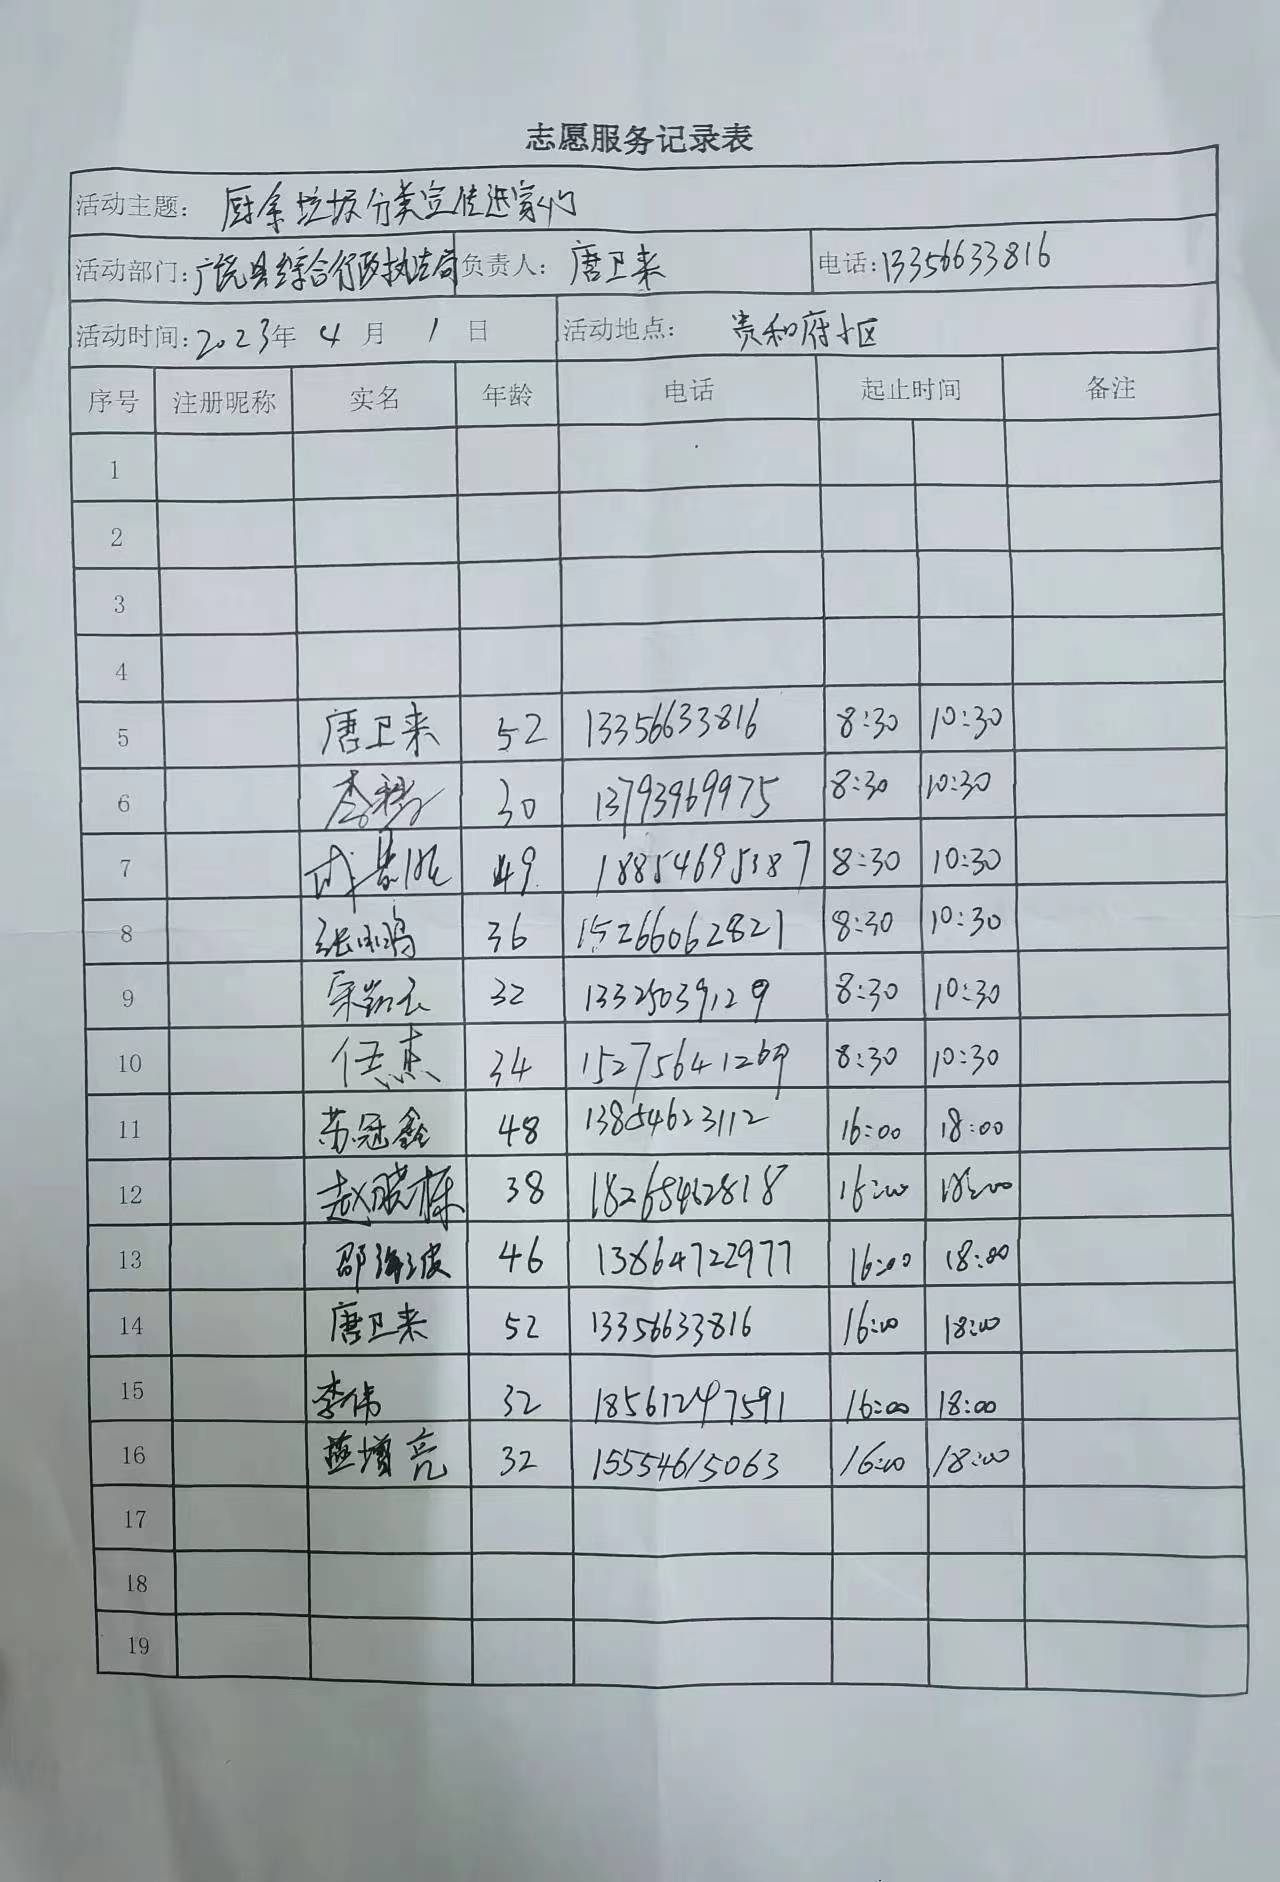 志愿服务记录表
活动主题: 厨余垃圾分类宣传进家门
活动部门: 广饶县综合行政执法局 负责人: 唐卫来 电话: 13356633816
活动时间: 2023年 4 月 1 日 活动地点: 贵和府小区
序号 注册昵称 实名 年龄 电话 起止时间 备注
1
2
3
4
5 唐卫来 52 13356633816 8:30 10:30
6 李 30 13793969975 8:30 10:30
7 成 49 18854695387 8:30 10:30
8 张 鸿 36 15266062821 8:30 10:30
9 宋凯云 32 13325039129 8:30 10:30
10 任杰 34 15275641269 8:30 10:30
11 苏冠鑫 48 13854623112 16:00 18:00
12 赵晓栋 38 18265462818 16:00 18:00
13 邵海波 46 13864722977 16:00 18:00
14 唐卫来 52 13356633816 16:00 18:00
15 李伟 32 18561247591 16:00 18:00
16 燕增亮 32 15554615063 16:00 18:00
17
18
19